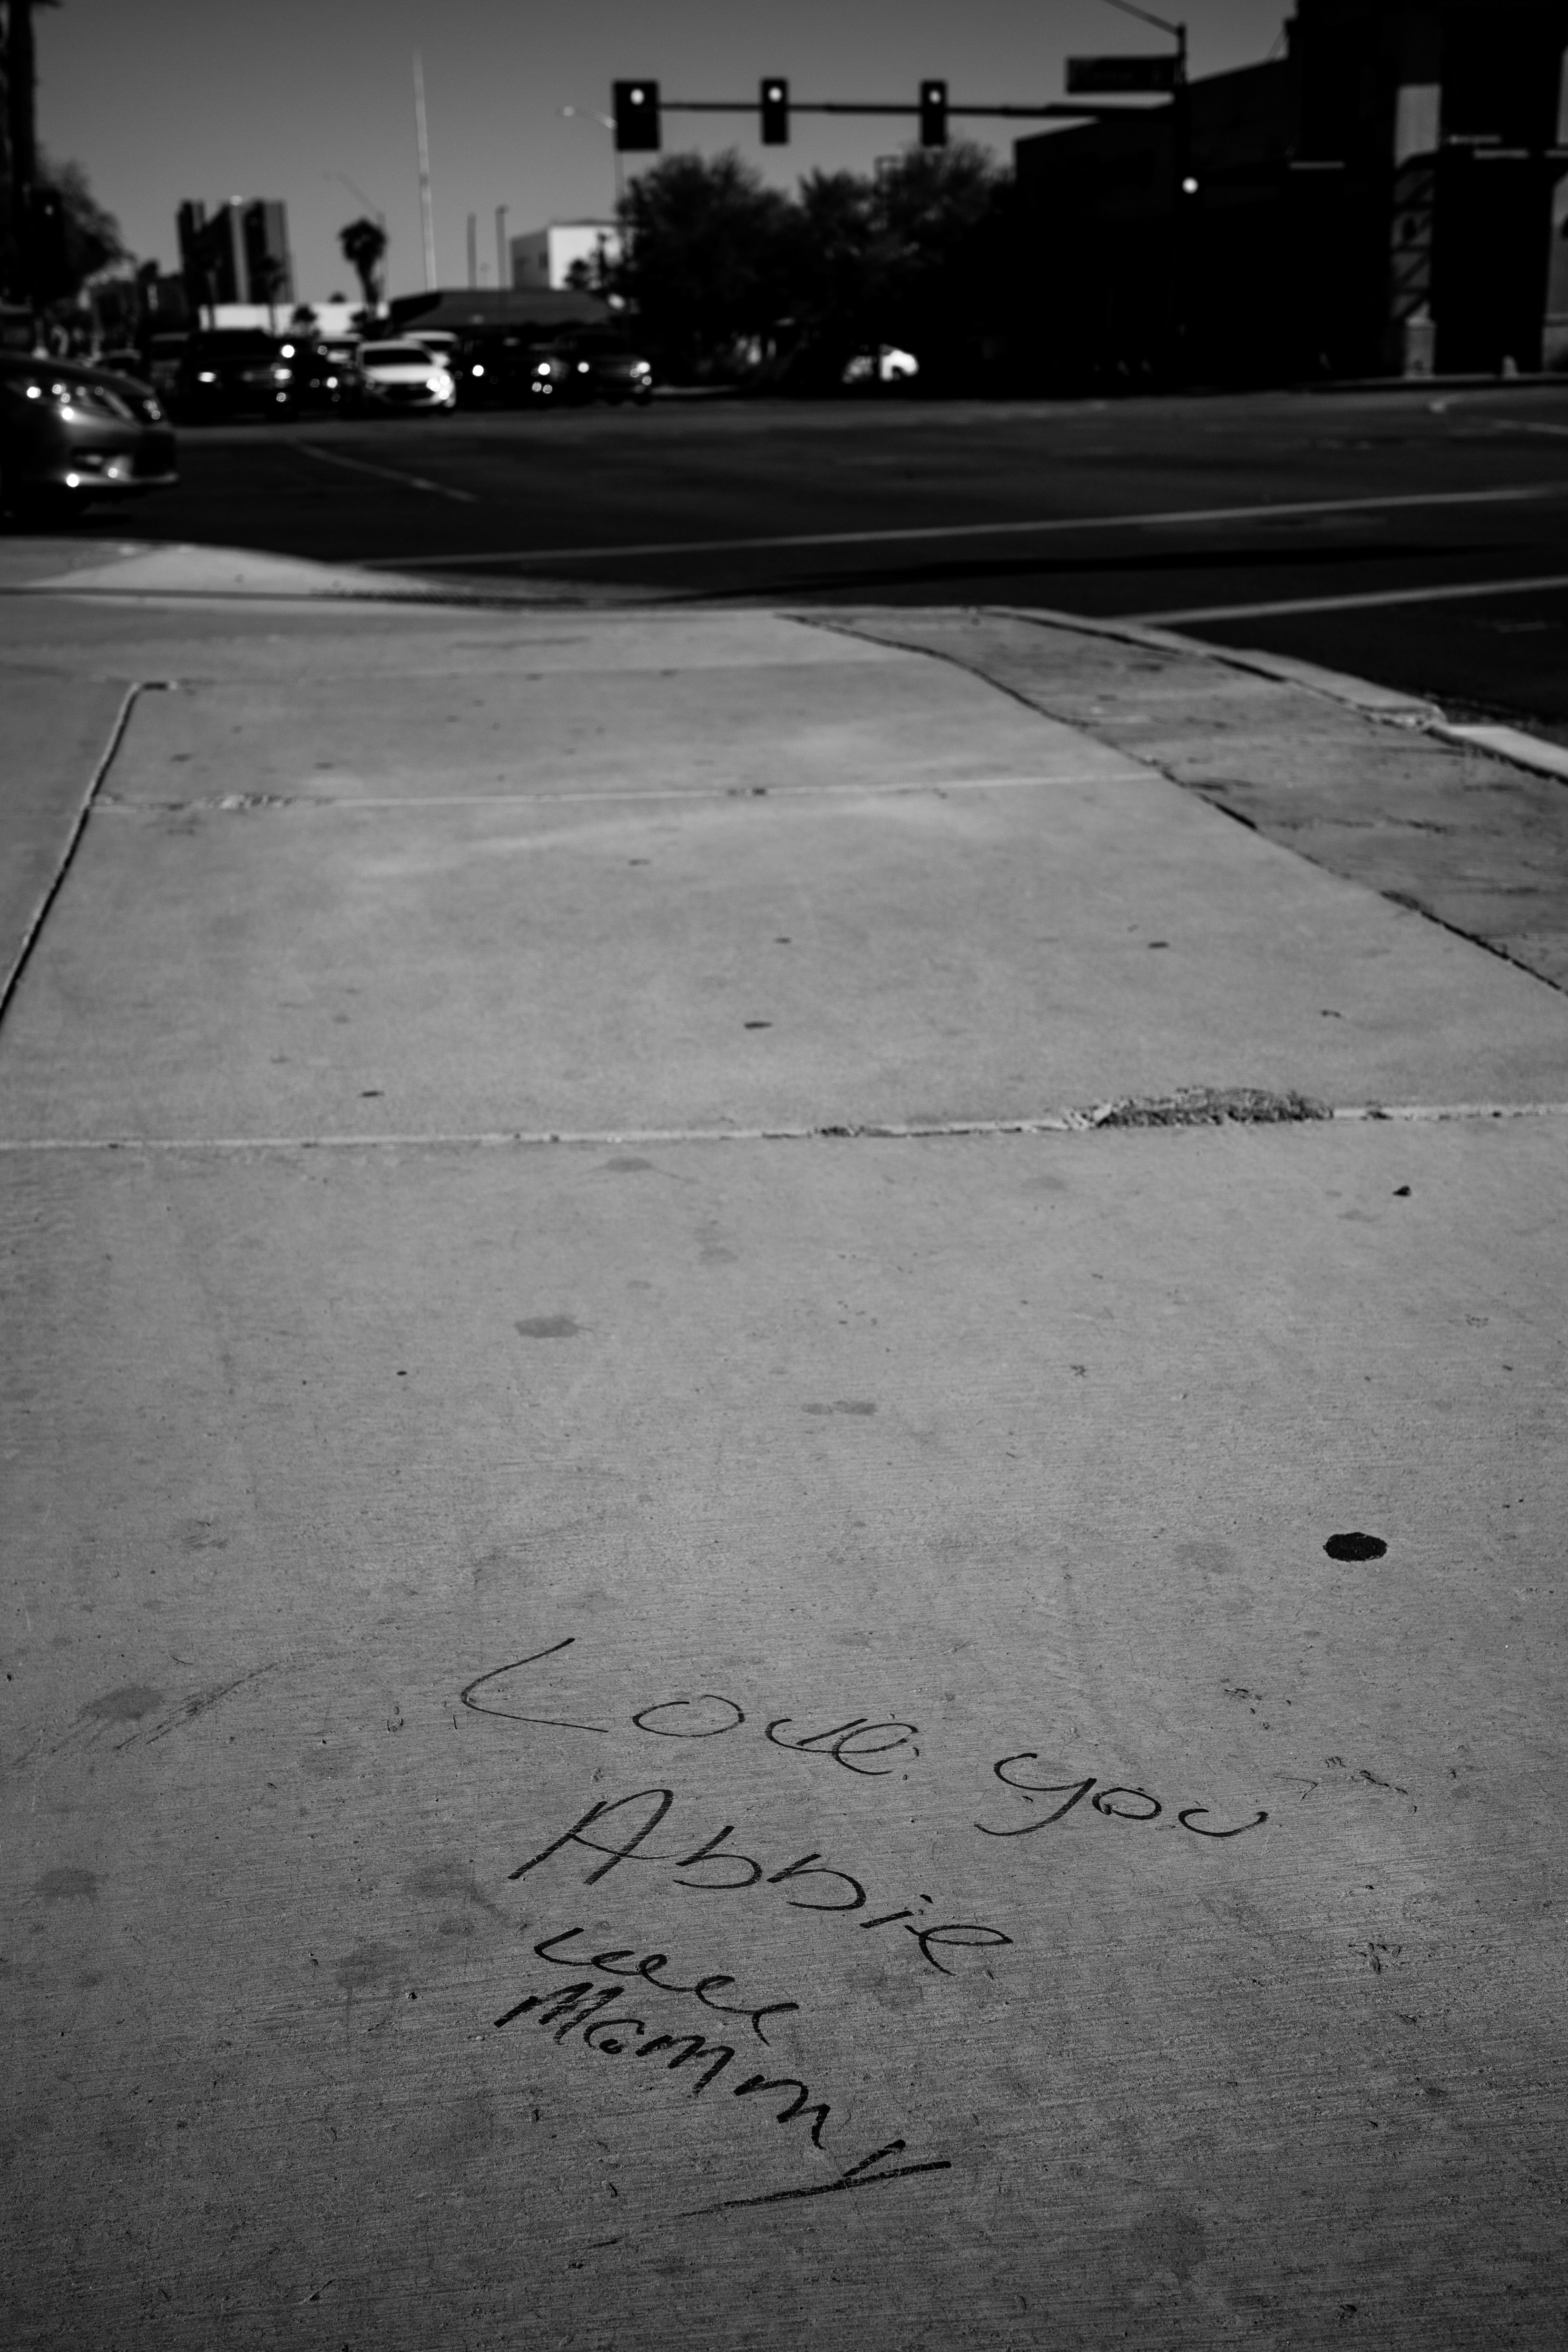 Love you
Abbie
Mommy